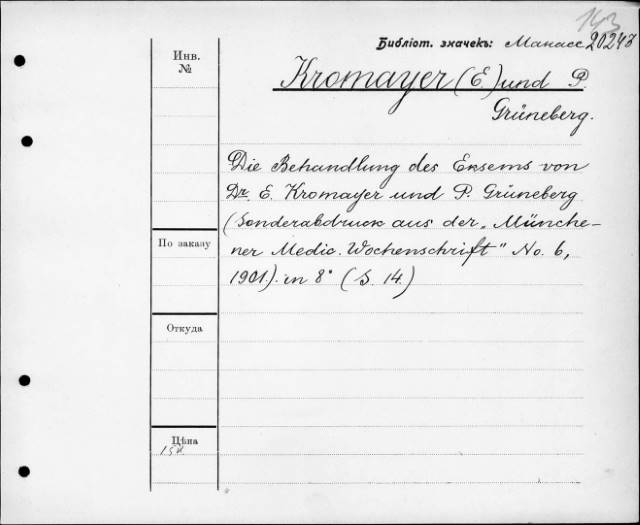 143
Библіот. значекъ: Манасс 20243
Инв.
№
Kromayer (E.) und P.
Grüneberg.
Die Behandlung des Eksems von
Dr. E. Kromayer und P. Grüneberg
(Sonderabdruck aus der „Münche-
По заказу
ner Medic. Wochenschrift" No. 6,
1901.). in 8° (S. 14.)
Откуда
Цѣна